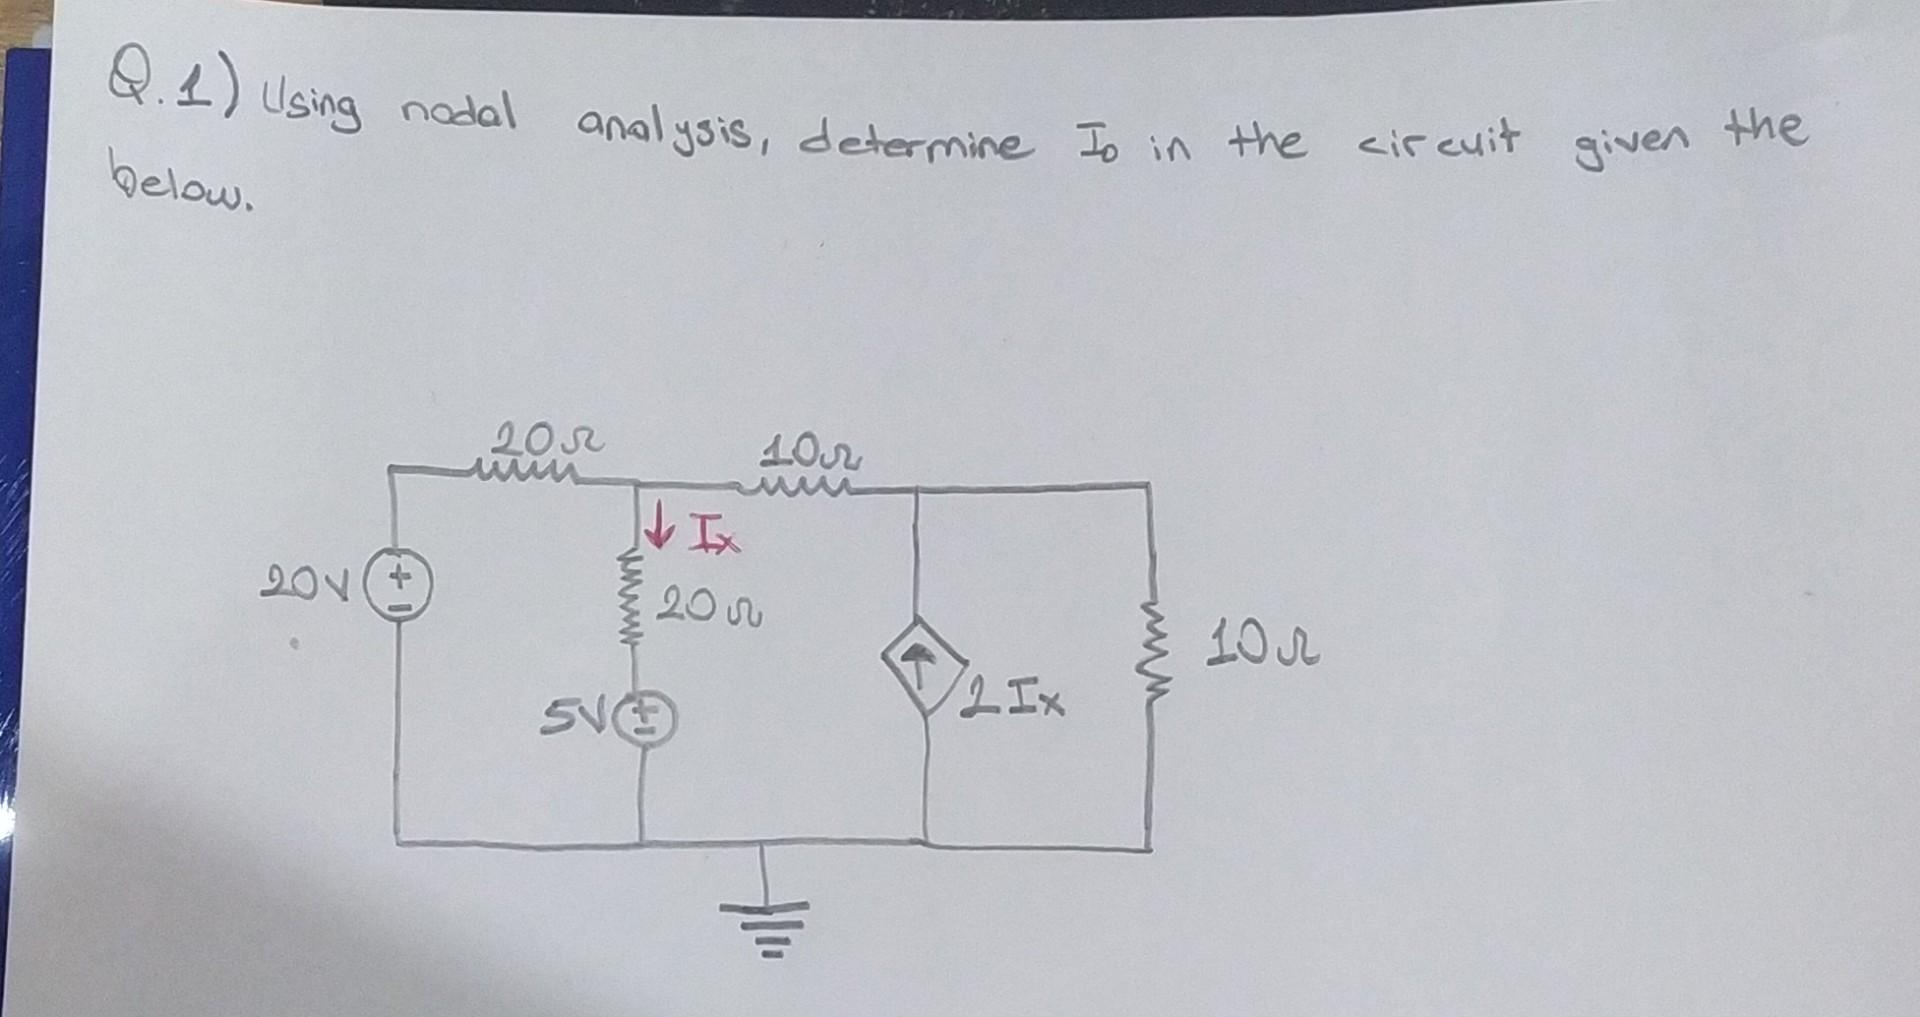 Q.1) Using nodal analysis, determine Io in the circuit given the
below.
20Ω
10Ω
Ix
20V
+
-
20Ω
10Ω
5V
+
-
2Ix